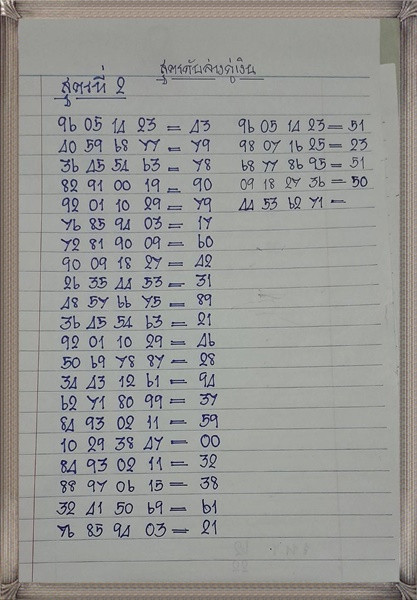 สูตรดับล่างคู่เงิน
สูตรที่ 2
96 05 14 23 = 43
40 59 68 77 = 79
36 45 54 63 = 78
82 91 00 19 = 90
92 01 10 29 = 79
76 85 94 03 = 17
72 81 90 09 = 60
90 09 18 27 = 42
26 35 44 53 = 31
48 57 66 75 = 89
36 45 54 63 = 21
92 01 10 29 = 46
50 69 78 87 = 28
34 43 12 61 = 94
62 71 80 99 = 37
84 93 02 11 = 59
10 29 38 47 = 00
84 93 02 11 = 32
88 97 06 15 = 38
32 41 50 69 = 61
76 85 94 03 = 21
96 05 14 23 = 51
98 07 16 25 = 23
68 77 86 95 = 51
09 18 27 36 = 50
44 53 62 71 =